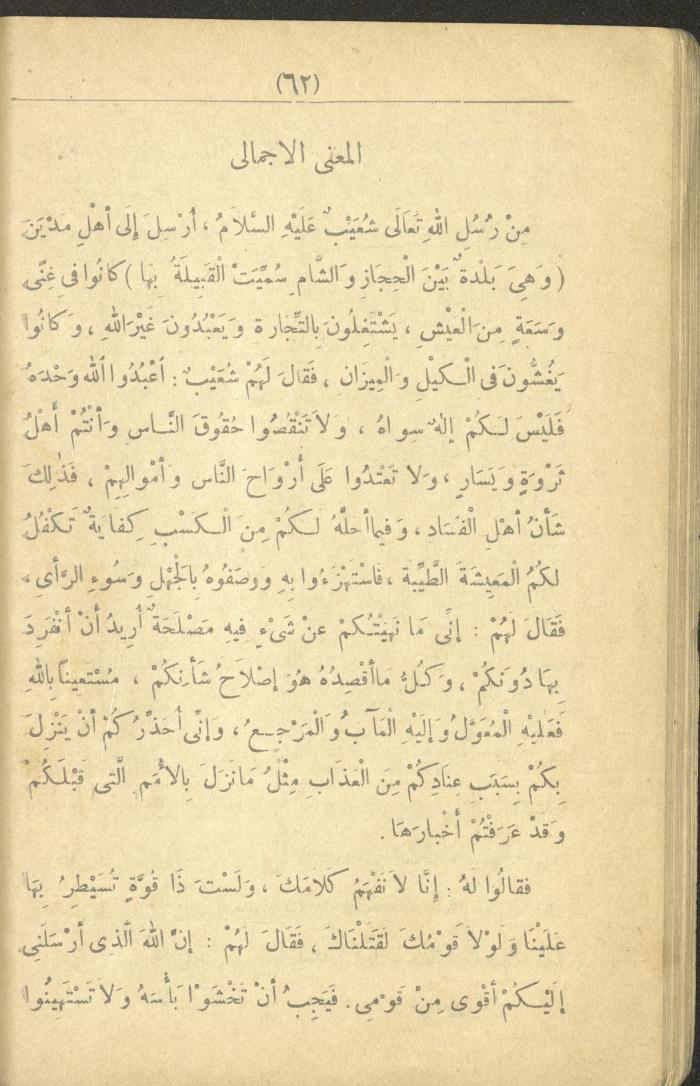 (٦٢)
المعنى الاجمالى
مِنْ رُسُلِ اللهِ تَعَالَى شُعَيْبٌ عَلَيْهِ السَّلاَمُ ، أُرْسِلَ إِلَى أَهْلِ مَدْيَنَ
( وَهِىَ بَلْدَةٌ بَيْنَ الْحِجَازِ وَالشَّامِ سُمِّيَتْ الْقَبِيلَةُ بِهَا ) كَانُوا فى غِنًى
وَسَعَةٍ مِنَ الْعَيْشِ ، يَشْتَغِلُونَ بِالتِّجَارة وَيَعْبُدُونَ غَيْرَ اللهِ ، وَكَانُوا
يَغُشُّونَ فى الْكَيْلِ وَالْمِيزَانِ ، فَقَالَ لَهُمْ شُعَيْبٌ : اُعْبُدُوا اللهَ وَحْدَهُ
فَلَيْسَ لَكُمْ إِلهٌ سواهُ ، وَلاَ تَنْقُصُوا حُقُوقَ النَّاسِ وَأَنْتُمْ أَهْلُ
ثَرْوَةٍ وَيَسَارٍ ، وَلا تَعْتَدُوا عَلَى أَرْوَاحَ النَّاس وَأَمْوالِهِمْ ، فَذٰلِكَ
شَأنُ أَهْلِ الْفَسَادِ ، وَفيما أحلَّهُ لَكُمْ مِنَ الْكَسْبِ كِفَايَةٌ تَكْفُلُ
لكُمُ الْمَعِيشَةَ الطَّيِّبة ، فَاسْتَهْزَءُوا بِهِ وَوَصَفُوهُ بِالْجَهْلِ وَسُوءِ الرَّأىِ ،
فَقَالَ لَهُمْ : إِنِّى مَا نَهَيْتُكُمْ عَنْ شَىْءٍ فِيهِ مَصْلَحَةٌ أُرِيدُ أَنْ أَنْفَرِدَ
بِهَا دُونَكُمْ ، وَكُلُّ مَا أَقْصِدُهُ هُوَ إِصْلَاحُ شَأْنِكُمْ ، مُسْتَعِينًا بِاللهِ
فَعَلَيْهِ الْمُعَوَّلُ وَإِلَيْهِ الْمَآبُ وَالْمَرْجِعُ ، وَإِنِّى أُحَذِّرُكُمْ أَنْ يَنْزِلَ
بِكُمْ بِسَبَبِ عِنَادِكُمْ مِنَ الْعَذَابِ مِثْلُ مَا نَزَلَ بِالأُمَمِ الَّتِى قَبْلَكُمْ
وَقَدْ عَرَفْتُمْ أَخْبارَهَا .
فقالُوا لَهُ : إِنَّا لاَ نَفْهَمُ كَلامَكَ ، وَلَسْتَ ذَا قُوَّةٍ تُسَيْطِرُ بِهَا
عَلَيْنَا وَلَوْلاَ قَوْمُكَ لَقَتَلْنَاكَ ، فَقَالَ لَهُمْ : إِنَّ اللهَ الَّذِى أَرْسَلَنِى
إِلَيْكُمْ أَقْوى مِنْ قَوْمِى . فَيَجِبُ أَنْ تَخْشَوْا بَأْسَهُ وَلاَ تَسْتَهِينُوا